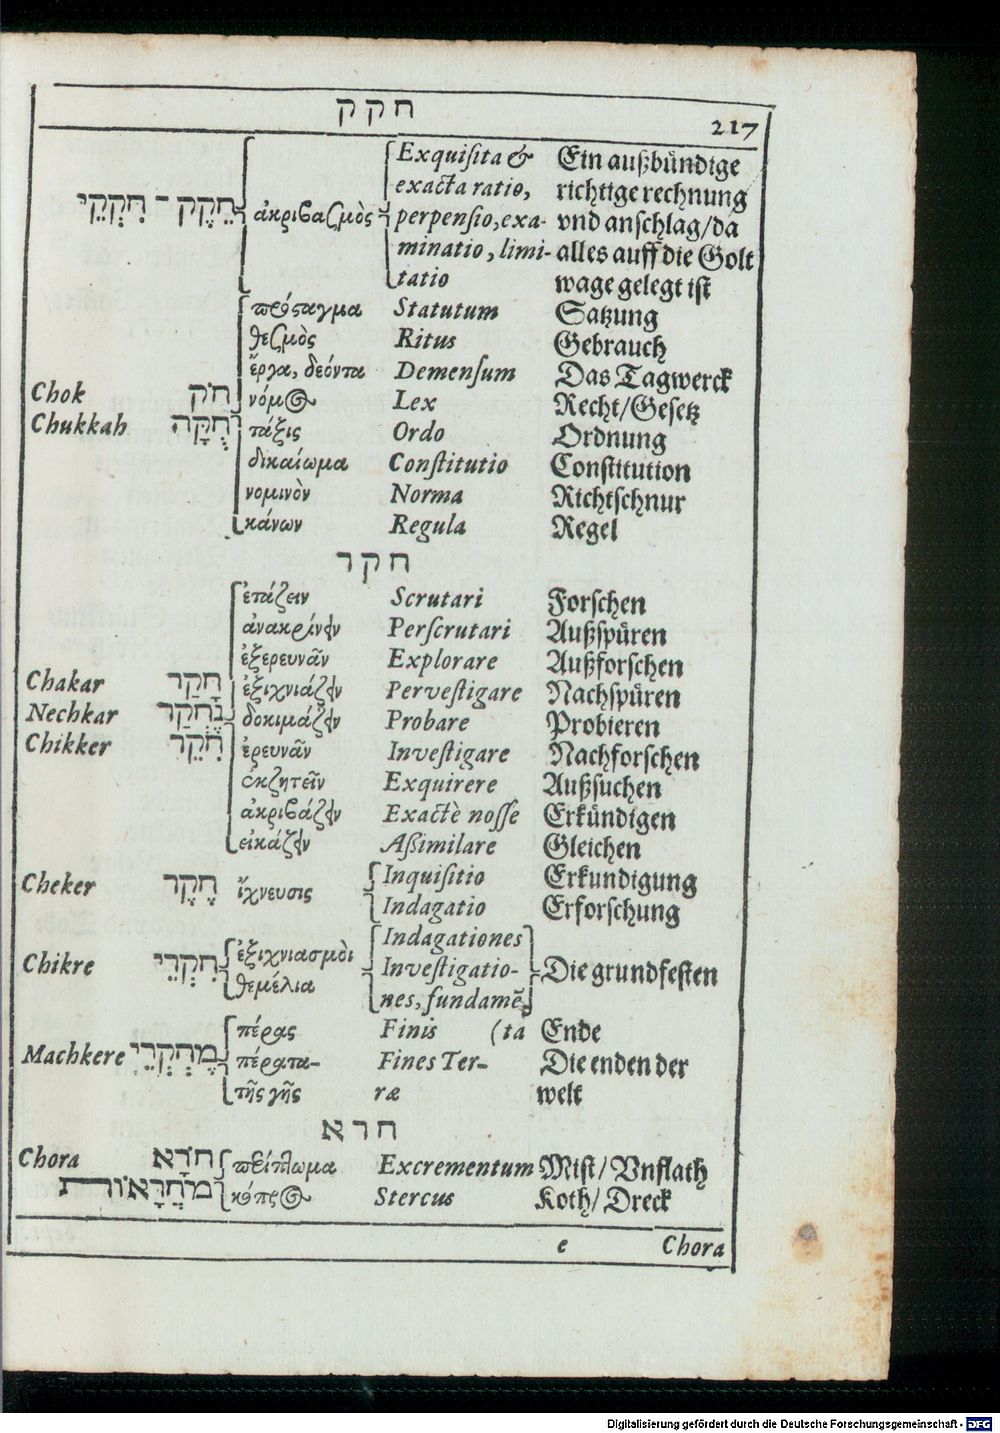 חקק 217
Exquiſita & Ein außbündige
exacta ratio, richtige rechnung
חֵקֶק - חִקְקֵי ἀκριβαζμὸς perpenſio, exa- vnd anſchlag/da
minatio, limi- alles auff die Golt
tatio wage gelegt iſt
πρόςαγμα Statutum Satzung
θεζμὸς Ritus Gebrauch
ἔργα, δεόντα Demenſum Das Tagwerck
Chok חֹק νόμος Lex Recht/Geſetz
Chukkah חֻקָּה τάξις Ordo Ordnung
δικαίωμα Conſtitutio Conſtitution
νομινὸν Norma Richtſchnur
κάνων Regula Regel
חקר
ἐτάζειν Scrutari Forſchen
ἀνακρίνειν Perſcrutari Außſpüren
ἐξερευνᾶν Explorare Außforſchen
Chakar חָקַר ἐξιχνιάζειν Perveſtigare Nachſpüren
Nechkar נֶחְקַר δοκιμάζειν Probare Probieren
Chikker חִקֵּר ἐρευνᾶν Inveſtigare Nachforſchen
ἐκζητεῖν Exquirere Außſuchen
ἀκριβάζειν Exactè noſſe Erkündigen
εἰκάζειν Aßimilare Gleichen
Cheker חֵקֶר ἴχνευσις Inquiſitio Erkundigung
Indagatio Erforſchung
Indagationes
Chikre חִקְרֵי ἐξιχνιασμὸι Inveſtigatio- Die grundfeſten
θεμέλια nes, fundamẽ
πέρας Finis (ta Ende
Machkere מֶחְקְרֵי πέρατα- Fines Ter- Die enden der
τῆς γῆς ræ welt
חרא
Chora חֹרָא Excrementum Miſt/ Vnflath
Stercus Koth/ Dreck
e Chora
Digitalisierung gefördert durch die Deutsche Forschungsgemeinschaft - DFG